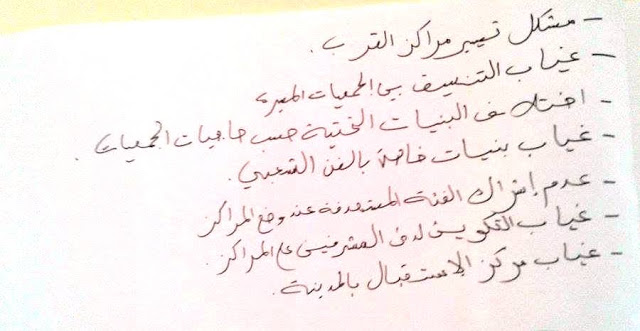 - مشكل تسيير مراكز القرب.
- غياب التنسيق بين الجمعيات المسيرة
- اختلاف البنيات التحتية حسب حاجيات الجمعيات.
- غياب بنيات خاصة بالفن الشعبي.
- عدم إشراك الفئة المستهدفة عند وضع المراكز
- غياب التكوين لدى المشرفين على المراكز.
- غياب مركز الاستقبال بالمدينة.